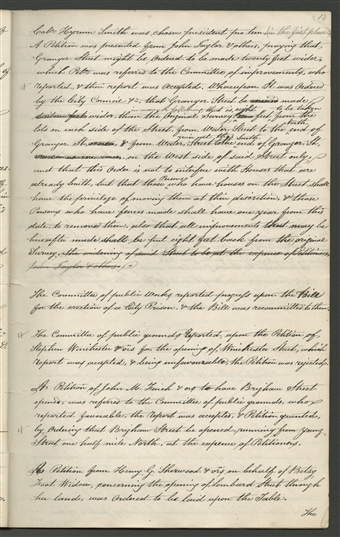 14
Cak: Hyrum Smith was chosen president, pro tem
A Petition was presented from John Taylor & others, praying that,
Granger Street might be ordered to be made twenty feet wider,
which Petn was referred to the Committee of improvements, who
reported, & their report was accepted, Whereupon It was ordered
by the City Council &c. that Granger Street be made
wider than the original Survey, feet from the
lots on each side of the Street, from Water Street to the end of
Granger St. & from Street to the end of Granger St.
on the West side of said Street only,
and that this Order is not to interfere with Houses that are
already built, but that those Persons who have houses on this Street shall
have the privilege of moving them at their discretion, & those
Persons who have fences made shall have one year from this
date to remove them, also that all improvements may be
hereafter made shall be put eight feet back from the original
Survey, the widening of said Street to be at the expense of Petitioners,
John Taylor & others.
The Committee of public Works reported progress upon the Bill
for the erection of a City Prison, & the Bill was recommitted to them.
The Committee of public grounds reported, upon the Petition, of
Stephen Winchester & ors for the opening of Winchester Street, which
report was accepted, & being unfavourable, the Petition was rejected.
A Petition of John M. Finch & ors to have Brigham Street
opened, was referred to the Committee of public grounds, who
reported favorable, the report was accepted, & Petition granted,
by Ordering that Brigham Street be opened running from Young
Street one half mile North, at the expense of Petitioners.
A Petition from Henry G. Sherwood & ors in behalf of Betsy
Widow, concerning the opening of Lumbard Street through
her lands, was ordered to be laid upon the Table.
The